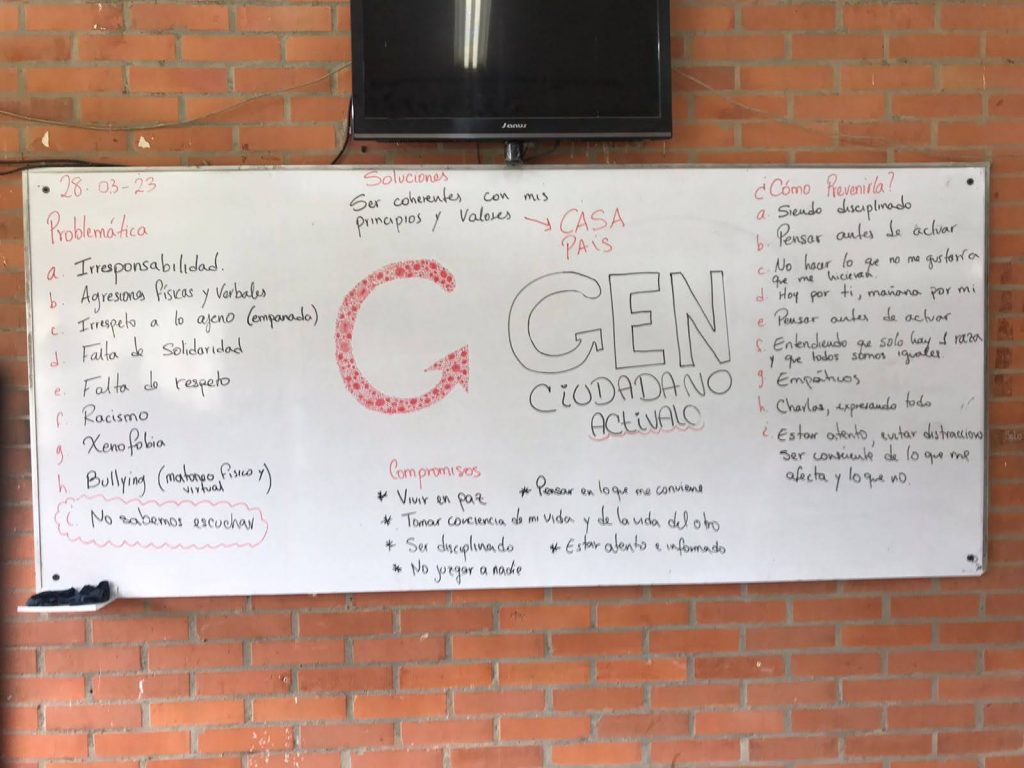 Janus
28-03-23
Problemática
a. Irresponsabilidad.
b. Agresiones físicas y Verbales
c. Irrespeto a lo ajeno (empanada)
d. Falta de Solidaridad
e. Falta de respeto
f. Racismo
g Xenofobia
h. Bullying (matoneo físico y
virtual)
i. No sabemos escuchar
Soluciones
Ser coherentes con mis
principios y Valores → CASA
PAIS
GEN
CIUDADANO
ACTIVALO
Compromisos
* Vivir en paz * Pensar en lo que me conviene
* Tomar conciencia de mi vida y de la vida del otro
* Ser disciplinado * Estar atento e informado
* No juzgar a nadie
¿Cómo Prevenirla?
a. Siendo disciplinado
b. Pensar antes de actuar
c. No hacer lo que no me gustaría
que me hicieran.
d. Hoy por ti, mañana por mi
e Pensar antes de actuar
f. Entendiendo que solo hay 1 raza
y que todos somos iguales.
g Empáticos
h. Charlas, expresando todo
i. Estar atento, evitar distracciones
Ser consciente de lo que me
afecta y lo que no.